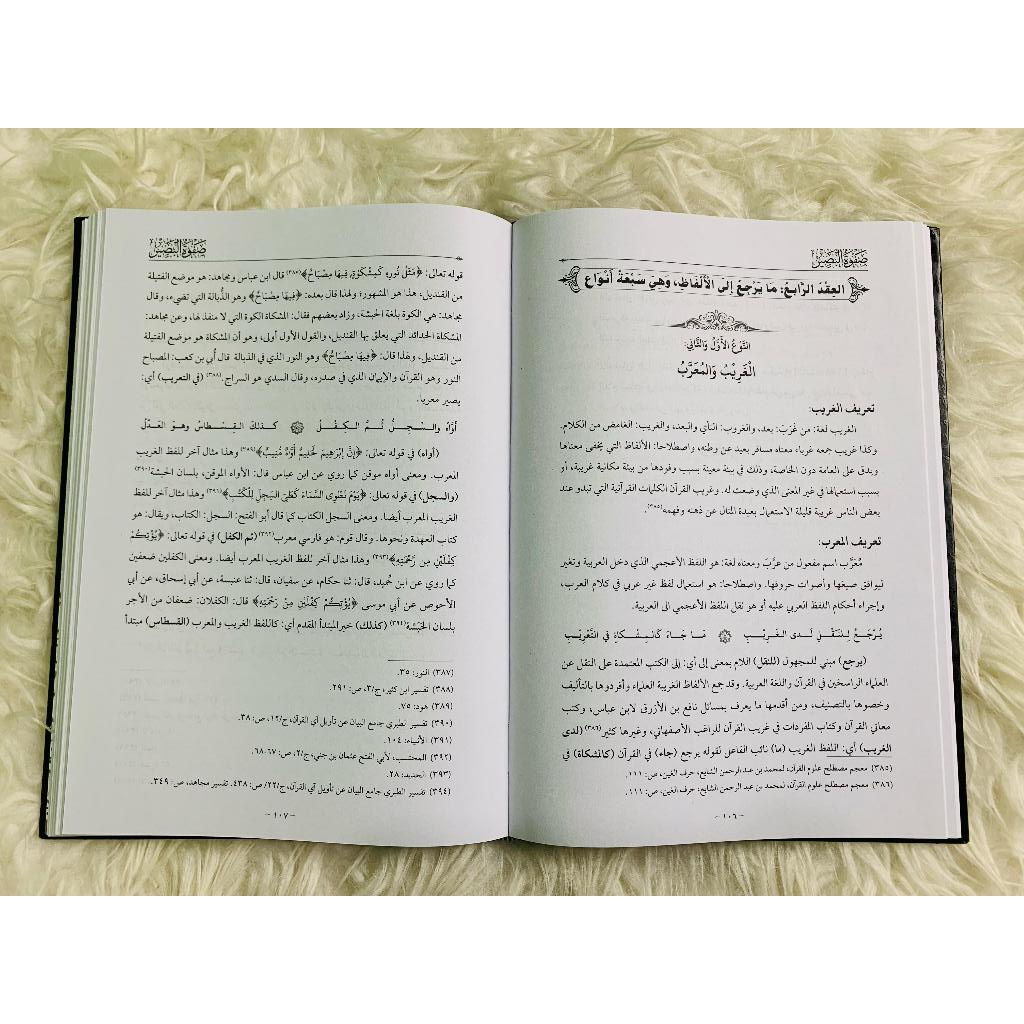 صفوة التفسير
العِقْدُ الرَّابِعُ: مَا يَرْجِعُ إِلَى الْأَلْفَاظِ، وَهِيَ سَبْعَةُ أَنْوَاعٍ
النَّوْعُ الأَوَّلُ وَالثَّانِي:
الْغَرِيْبُ وَالْمُعَرَّبُ
تعريف الغريب:
الغريب لغة: من غَرَبَ: بعد، والغروب: النأي والبعد، والغريب: الغامض من الكلام.
وكذا غريب جمعه غرباء معناه مسافر بعيد عن وطنه، واصطلاحا: الألفاظ التي يخفى معناها
ويدق على العامة دون الخاصة، وذلك في بيئة معينة بسبب وفودها من بيئة مكانية غريبة، أو
بسبب استعمالها في غير المعنى الذي وضعت له. وغريب القرآن الكلمات القرآنية التي تبدو عند
بعض الناس غريبة قليلة الاستعمال بعيدة المنال عن ذهنه وفهمه(٣٨٥).
تعريف المعرب:
مُعَرَّب اسم مفعول من عرَّبَ ومعناه لغة: هو اللفظ الأعجمي الذي دخل العربية وتغير
ليوافق صيغها وأصوات حروفها. واصطلاحا: هو استعمال لفظ غير عربي في كلام العرب،
وإجراء أحكام اللفظ العربي عليه أو هو نقل اللفظ الأعجمي الى العربية.
يُـرْجَـعُ لِلنَّـقْـلِ لَـدَى الـغَـرِيْـبِ ۞ مَـا جَـاءَ كَـالـمِـشْـكَـاةِ فِي التَّعْرِيْبِ
(يرجع) مبني للمجهول (للنقل) اللام بمعنى إلى أي: إلى الكتب المعتمدة على النقل عن
العلماء الراسخين في القرآن واللغة العربية. وقد جمع الألفاظ الغريبة العلماء وأفردوها بالتأليف
وخصوها بالتصنيف، ومن أقدمها ما يعرف بمسائل نافع بن الأزرق لابن عباس، وكتب
معاني القرآن وكتاب المفردات في غريب القرآن للراغب الأصفهاني، وغيرها كثير(٣٨٦) (لدى
الغريب) أي: اللفظ الغريب (ما) نائب الفاعل لقوله يرجع (جاء) في القرآن (كالمشكاة) في
(٣٨٥) معجم مصطلح علوم القرآن، لمحمد بن عبد الرحمن الشايع، حرف الغين، ص: ١١١.
(٣٨٦) معجم مصطلح علوم القرآن، لمحمد بن عبد الرحمن الشايع، حرف الغين، ص: ١١١.
- ١٠٦ -
صفوة التفسير
قوله تعالى: ﴿مَثَلُ نُورِهِ كَمِشْكَوٰةٍ فِيهَا مِصْبَاحٌ﴾(٣٨٧) قال ابن عباس ومجاهد: هو موضع الفتيلة
من القنديل، هذا هو المشهور؛ ولهذا قال بعده: ﴿فِيهَا مِصْبَاحٌ﴾ وهو الذُّبالة التي تضيء، وقال
مجاهد: هي الكوة بلغة الحبشة، وزاد بعضهم فقال: المشكاة الكوة التي لا منفذ لها، وعن مجاهد:
المشكاة الحدائد التي يعلق بها القنديل، والقول الأول أولى، وهو أن المشكاة هو موضع الفتيلة
من القنديل، وهذا قال: ﴿فِيهَا مِصْبَاحٌ﴾ وهو النور الذي في الذبالة قال أُبي بن كعب: المصباح
النور وهو القرآن والإيمان الذي في صدره، وقال السدي هو السراج.(٣٨٨) (في التعريب) أي:
يصير معربا.
أَوَّاهُ والسِّجِلُّ ثُـمَّ الكِفْلُ ۞ كَـذلكَ القِسْطَاسُ وهـو العَدْلُ
(أواه) في قوله تعالى: ﴿إِنَّ إِبْرَٰهِيمَ لَحَلِيمٌ أَوَّٰهٌ مُّنِيبٌ﴾(٣٨٩) وهذا مثال آخر للفظ الغريب
المعرب. ومعنى أواه موقن كما روي عن ابن عباس قال: الأواه الموقن، بلسان الحبشة(٣٩٠)
(والسجل) في قوله تعالى: ﴿يَوْمَ نَطْوِى السَّمَاءَ كَطَىِّ السِّجِلِّ لِلْكُتُبِ﴾(٣٩١) وهذا مثال آخر للفظ
الغريب المعرب أيضا. ومعنى السجل الكتاب كما قال أبو الفتح: السجل: الكتاب، ويقال: هو
كتاب العهدة ونحوها. وقال قوم: هو فارسي معرب(٣٩٢) (ثم الكفل) في قوله تعالى: ﴿يُؤْتِكُمْ
كِفْلَيْنِ مِن رَّحْمَتِهِ﴾(٣٩٣) وهذا مثال آخر للفظ الغريب المعرب أيضا. ومعنى الكفلين ضعفين
كما روي عن ابن حُميد، قال: ثنا حكام، عن سفيان، قال: ثنا عنبسة، عن أبي إسحاق، عن أبي
الأحوص عن أبي موسى ﴿يُؤْتِكُمْ كِفْلَيْنِ مِن رَّحْمَتِهِ﴾ قال: الكفلان: ضعفان من الأجر
بلسان الحَبَشة(٣٩٤) (كذلك) خبر المبتدأ المقدم أي: كاللفظ الغريب والمعرب (القسطاس) مبتدأ
(٣٨٧) النور: ٣٥.
(٣٨٨) تفسير ابن كثير، ج/٣، ص: ٢٩١.
(٣٨٩) هود: ٧٥.
(٣٩٠) تفسير الطبري جامع البيان عن تأويل آي القرآن، ج/١٢، ص: ٣٨.
(٣٩١) الأنبياء: ١٠٤.
(٣٩٢) المحتسب، لأبي الفتح عثمان بن جني، ج/٢، ص: ٦٧-٦٨.
(٣٩٣) الحديد: ٢٨.
(٣٩٤) تفسير الطبري جامع البيان عن تأويل آي القرآن، ج/٢٢، ص: ٤٣٨. تفسير مجاهد، ص: ٣٤٩.
- ١٠٧ -